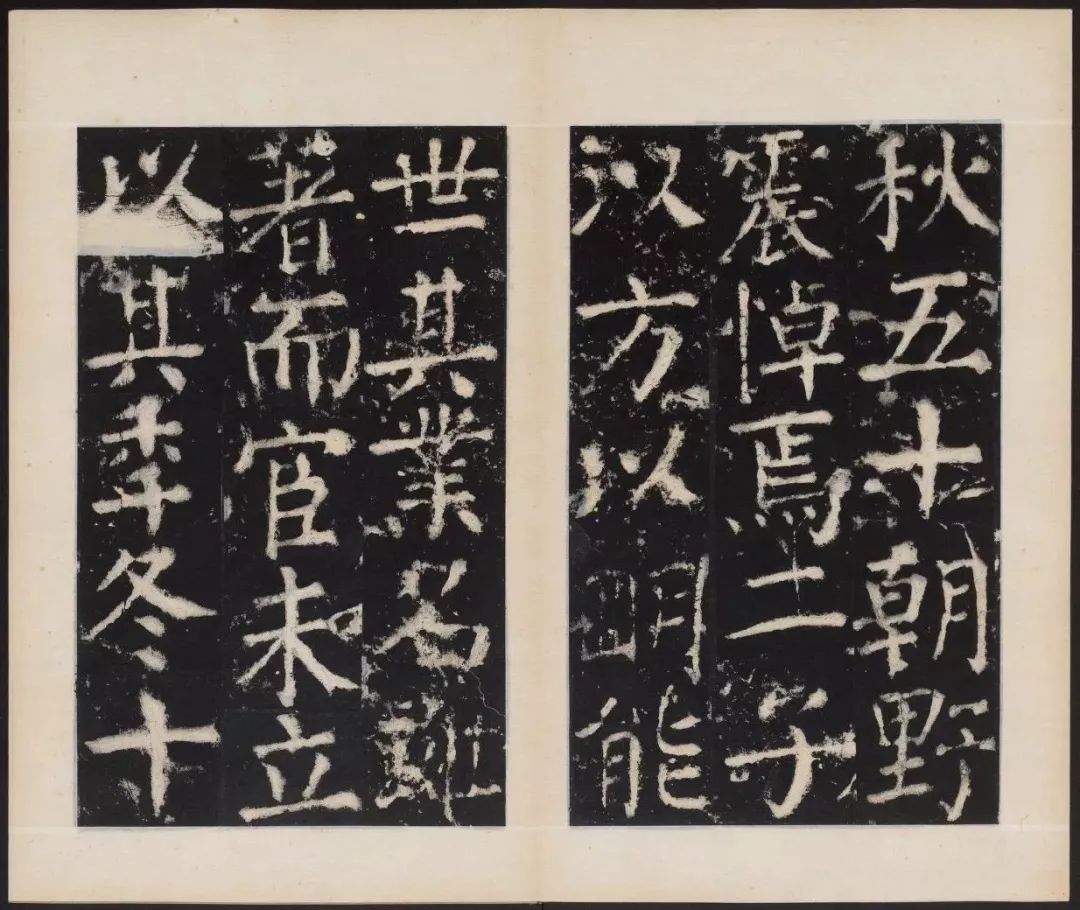 秋五十朝野
震悼焉二子
以方以明能
世其業名雖
著而官未立
以其季冬十